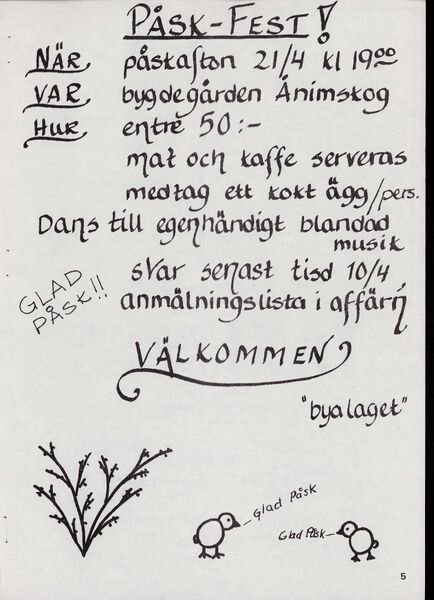 PÅSK-FEST!
NÄR påskafton 21/4 kl 19⁰⁰
VAR bygdegården Ånimskog
HUR entré 50:-
mat och kaffe serveras
medtag ett kokt ägg/pers.
Dans till egenhändigt blandad
musik
svar senast tisd 10/4
anmälningslista i affärn
GLAD
PÅSK!!
VÄLKOMMEN
"byalaget"
Glad Påsk
Glad Påsk
5